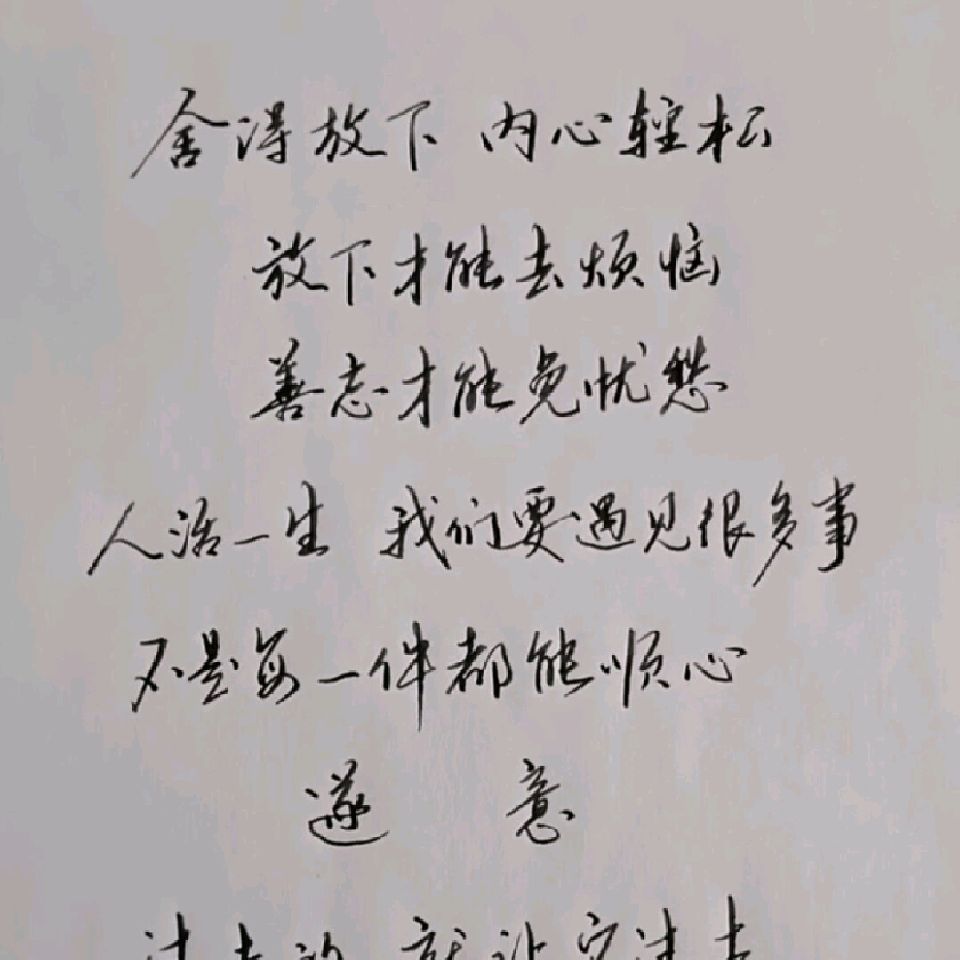 舍得放下 内心轻松
放下才能去烦恼
善忘才能免忧愁
人活一生 我们要遇见很多事
不是每一件都能顺心
遂 意
过去的 就让它过去